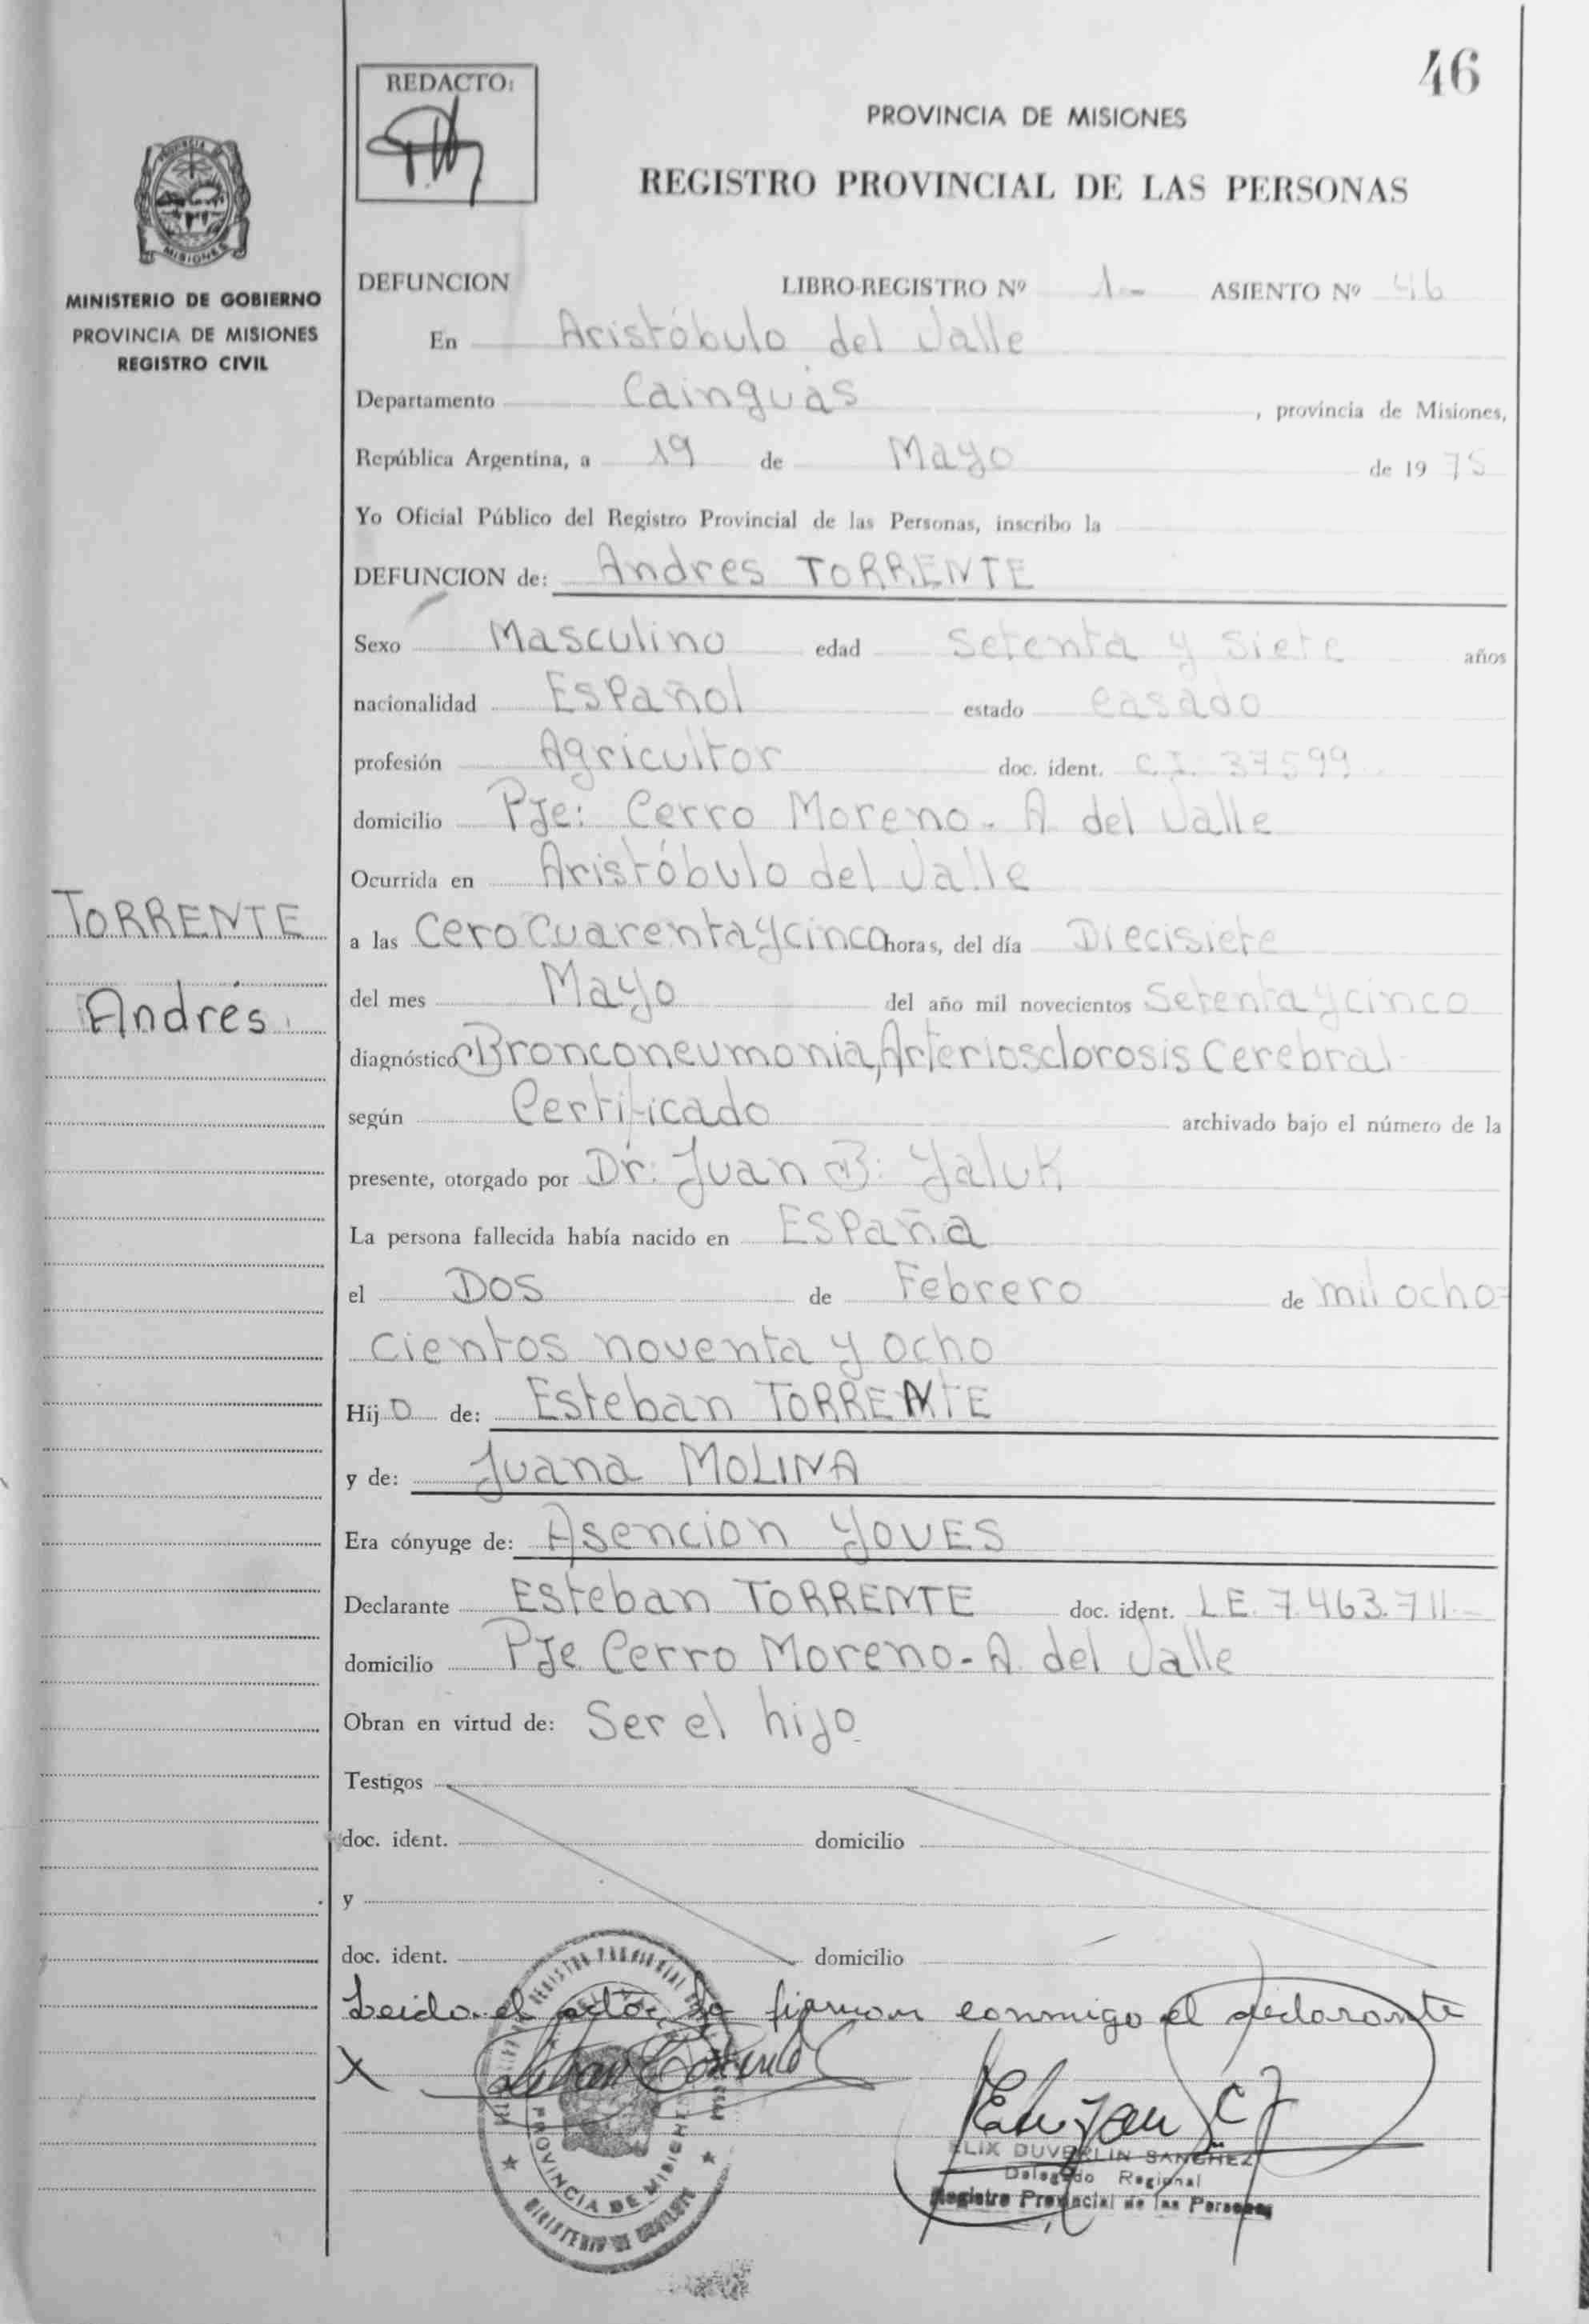 46
REDACTO:
PROVINCIA DE MISIONES
REGISTRO PROVINCIAL DE LAS PERSONAS
MISIONES
MINISTERIO DE GOBIERNO
PROVINCIA DE MISIONES
REGISTRO CIVIL
DEFUNCION LIBRO-REGISTRO Nº 1- ASIENTO Nº 46
En Aristóbulo del Valle
Departamento Cainguás, provincia de Misiones,
República Argentina, a 19 de Mayo de 1975
Yo Oficial Público del Registro Provincial de las Personas, inscribo la
DEFUNCION de: Andres TORRENTE
Sexo Masculino edad Setenta y Siete años
nacionalidad Español estado casado
profesión Agricultor doc. ident. C.I. 37599
domicilio Pje: Cerro Moreno. A del Valle
Ocurrida en Aristóbulo del Valle
TORRENTE
a las Cero Cuarenta y cinco horas, del día Diecisiete
del mes Mayo del año mil novecientos Setenta y cinco
Andrés
diagnóstico Bronconeumonia, Arteriosclorosis Cerebral
según Certificado archivado bajo el número de la
presente, otorgado por Dr: Juan B: Yaluk
La persona fallecida había nacido en España
el Dos de Febrero de mil ocho=
cientos noventa y ocho
Hijo de: Esteban TORRENTE
y de: Juana MOLINA
Era cónyuge de: Asencion YOVES
Declarante Esteban TORRENTE doc. ident. L.E. 7.463.711.-
domicilio Pje Cerro Moreno- A. del Valle
Obran en virtud de: Ser el hijo
Testigos
doc. ident. domicilio
y
doc. ident. domicilio
Leido el acta la firman conmigo el declarante
X
ELIX DUVERLIN SANCHEZ
Delegado Regional
Registro Provincial de las Personas
PROVINCIA DE MISIONES
MINISTERIO DE GOBIERNO